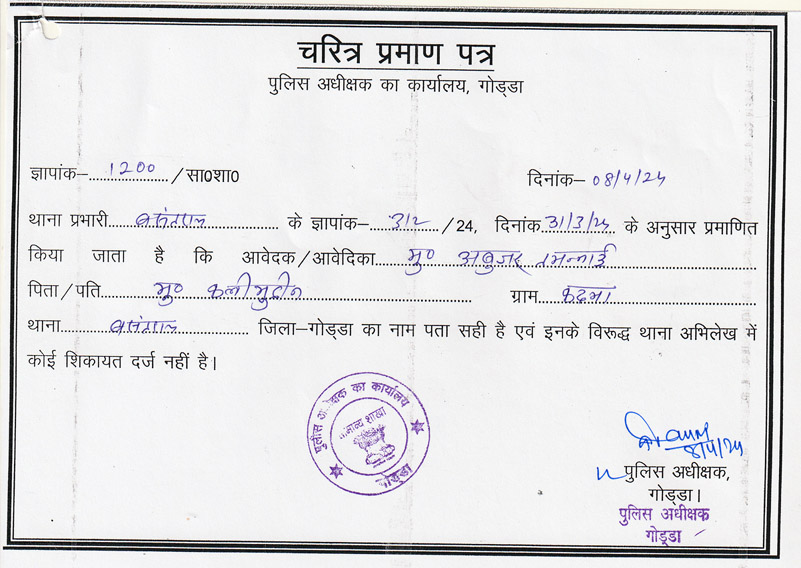 चरित्र प्रमाण पत्र
पुलिस अधीक्षक का कार्यालय, गोड्डा
ज्ञापांक–1200/सा0शा0 दिनांक–08/4/24
थाना प्रभारी बसंतराय के ज्ञापांक–312/24, दिनांक 31/3/24 के अनुसार प्रमाणित
किया जाता है कि आवेदक/आवेदिका मु० अबुजर तमन्नाई
पिता/पति मु० कलीमुद्दीन ग्राम कदमा
थाना बसंतराय जिला–गोड्डा का नाम पता सही है एवं इनके विरूद्ध थाना अभिलेख में
कोई शिकायत दर्ज नहीं है।
पुलीस अधीक्षक का कार्यालय
सामान्य शाखा
गोड्डा
8/4/24
पुलिस अधीक्षक,
गोड्डा।
पुलिस अधीक्षक
गोड्डा